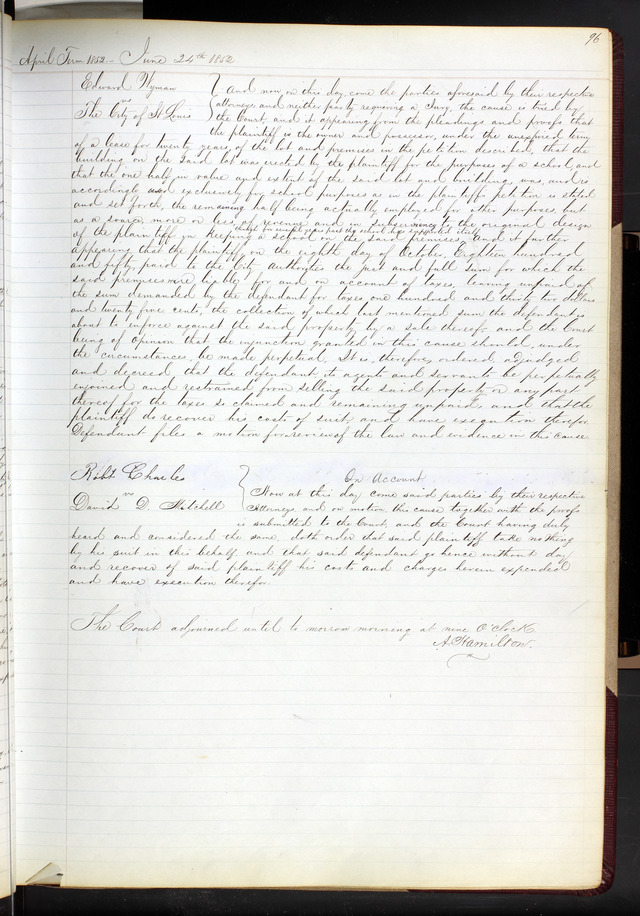 96
April Term 1852 — June 24th 1852
Edward Wyman
vs
The City of St Louis
And now on this day, come the parties aforesaid by their respective
attorneys and neither party requiring a Jury, the cause is tried by
the Court, and it appearing from the pleadings and proofs that
the plaintiff is the owner and possessor, under the unexpired term
of a lease for twenty years, of the lot and premises in the petition described, that the
building on the said lot was erected by the plaintiff for the purposes of a school, and
that the one half in value and extent of the said lot and building, was, and is
accordingly used exclusively for school purposes as in the plaintiff's petition is stated
and set forth, the remaining half being actually employed for other purposes, but
as a source, more or less, of revenue and in subserviency to the original design
of the plaintiff in keeping a school on the said premises, And it further
appearing that the plaintiff, on the eighth day of October, Eighteen hundred
and fifty, paid to the City authorities the just and full sum for which the
said premises were liable, for and on account of taxes, leaving unpaid of
the sum demanded by the defendant for taxes one hundred and thirty two dollars
and twenty five cents, the collection of which last mentioned sum the defendant is
about to enforce against the said property by a sale thereof and the Court
being of opinion that the injunction granted in this cause should, under
the circumstances, be made perpetual, It is, therefore, ordered adjudged
and decreed that the defendant, its agents and servants be perpetually
enjoined and restrained from selling the said property or any part
thereof for the taxes so claimed and remaining unpaid, and that the
plaintiff do recover his costs of suit, and have execution therefor
Defendant files a motion for review of the law and evidence in this cause
Robt. Charles
vs
David D. Mitchell
On Account
Now at this day come said parties by their respective
Attorneys and on motion this cause together with the proofs
is submitted to the Court, and the Court having duly
heard and considered the same, doth order that said plaintiff take nothing
by his suit in this behalf and that said defendant go hence without day
and recover of said plaintiff his costs and charges herein expended
and have execution therefor.
The Court adjourned until to morrow morning at nine O'Clock
A. Hamilton.